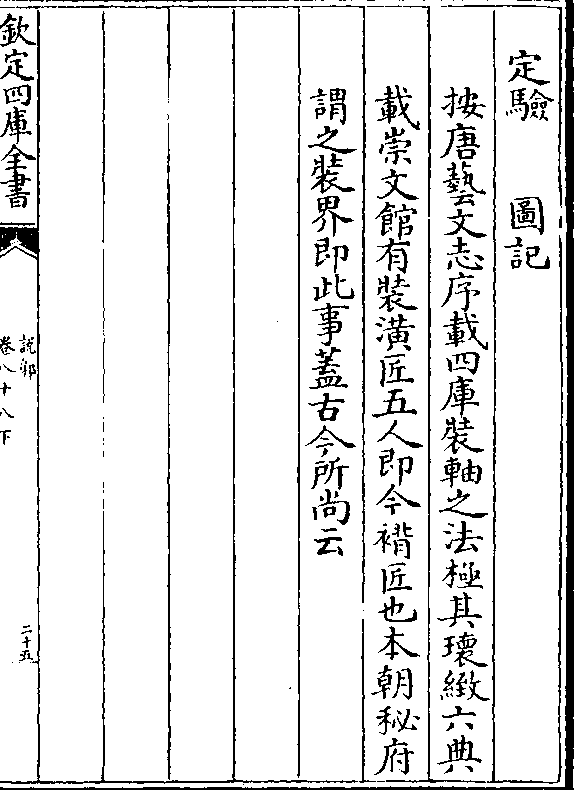 定驗　圖記
按唐藝文志序載四庫裝軸之法極其瓌緻六典
載崇文館有裝潢匠五人即今褙匠也本朝秘府
謂之裝界即此事蓋古今所尚云
欽定四庫全書
說郛
卷八十八下
二十五